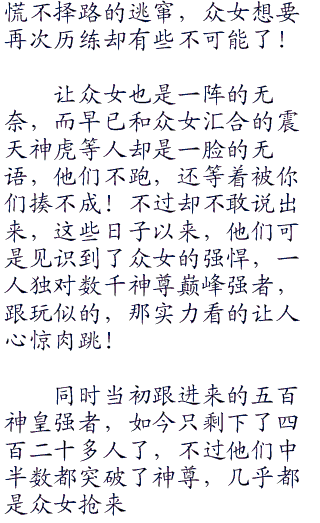 慌不择路的逃窜，众女想要
再次历练却有些不可能了！
让众女也是一阵的无
奈，而早已和众女汇合的震
天神虎等人却是一脸的无
语，他们不跑，还等着被你
们揍不成！不过却不敢说出
来，这些日子以来，他们可
是见识到了众女的强悍，一
人独对数千神尊巅峰强者，
跟玩似的，那实力看的让人
心惊肉跳！
同时当初跟进来的五百
神皇强者，如今只剩下了四
百二十多人了，不过他们中
半数都突破了神尊，几乎都
是众女抢来